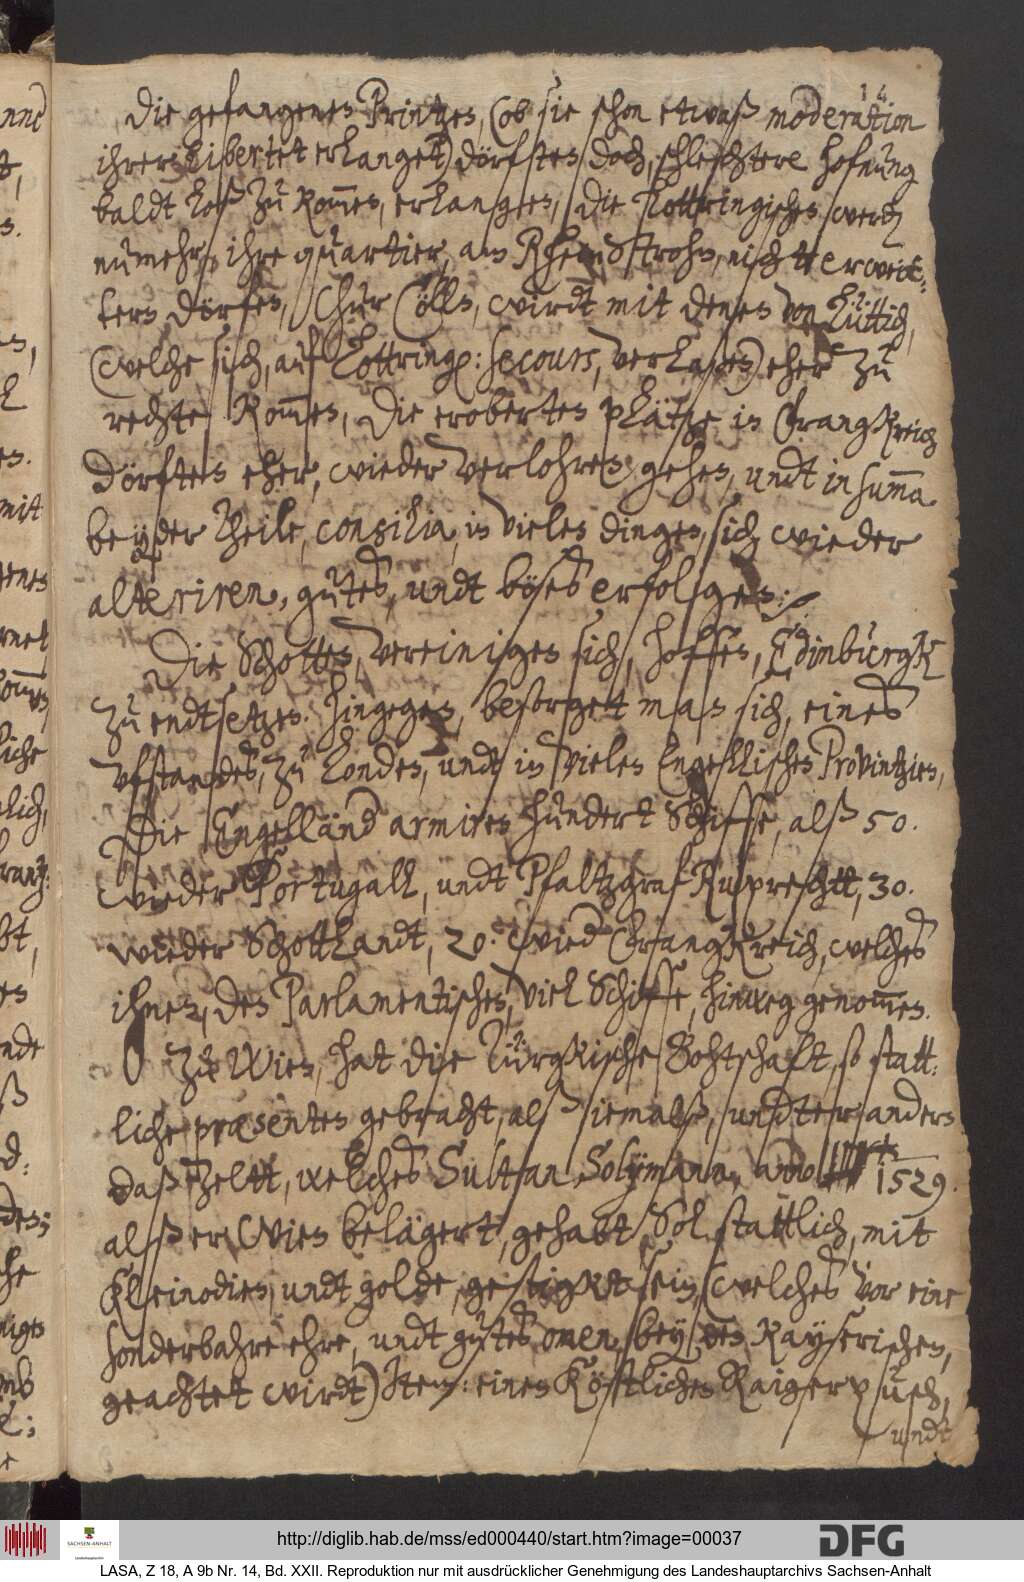 14
Die gefangenen Printzen, (ob sie schon etwaß moderation
ihrer Libertet erlanget) dörften doch, schlechtere hofnung
baldt loß zu kom̅en, erlangen, die Lottringischen werden
nu̅mehr, ihre quartier, am Rheinstrohm, nicht erweit-
tern dörfen, Chur Cölln, wirdt mit denen von Lüttich,
(welche sich, auf Lottring: secours, verlaßen) eher zu
rechte kom̅en, die eroberten plätze in Franckreich
dörften eher, wieder verlohren gehen, undt in summa
beyder Theile, consilia, in vielen dingen, sich wieder
alteriren, gutes, undt böses erfolgen.
Die Schotten, vereinigen sich, hoffen, Edinburgk
zu endtsetzen. hingegen, besorgett man sich, eines
ufstandes, zu Londen, undt in vielen Engellischen Provintzien,
Die Engelländ armiren hundert Schiffe, alß 50.
wieder Portugall, undt Pfaltzgraf Ruprechtt, 30.
wieder Schottlandt, 20. wied Franckreich, welches
ihnen, den Parlamentischen, viel Schiffe, hinweg genom̅en.
Zu Wien, hat die Türgkische Bohtschaft, so statt-
liche præsenten gebracht, alß niemalß, undter andern
daß Zeltt, welches Sultan Solÿmann, anno 1529.
alß er Wien belägert, gehabt, Sol stattlich, mit
Kleinodien, undt golde, gestigkt sein, (welches vor eine
sonderbahre ehre, undt gutes omen, bey den Kayserischen,
geachtet wirdt) Item: einen Köstlichen Raigerpusch,
undt
http://diglib.hab.de/mss/ed000440/start.htm?image=00037
SACHSEN-ANHALT
DFG
LASA, Z 18, A 9b Nr. 14, Bd. XXII. Reproduktion nur mit ausdrücklicher Genehmigung des Landeshauptarchivs Sachsen-Anhalt